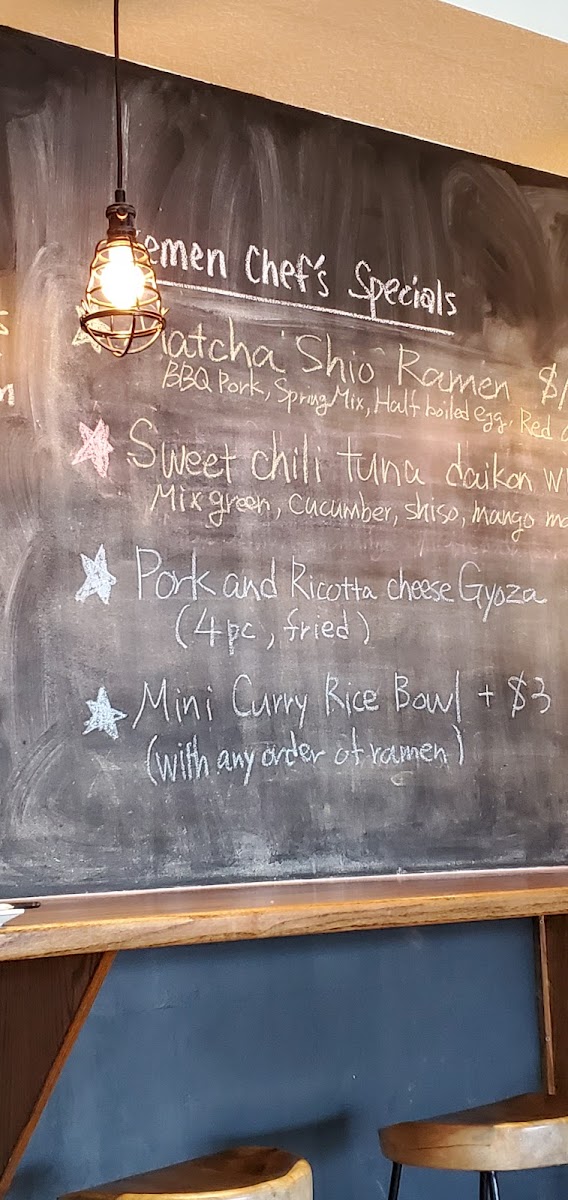 Chef's Specials
Matcha "Shio" Ramen $1
BBQ Pork, Spring Mix, Half boiled egg, Red
Sweet chili tuna daikon
Mix green, cucumber, shiso, mango
Pork and Ricotta cheese Gyoza
(4pc, fried)
Mini Curry Rice Bowl + $3
(with any order of ramen)